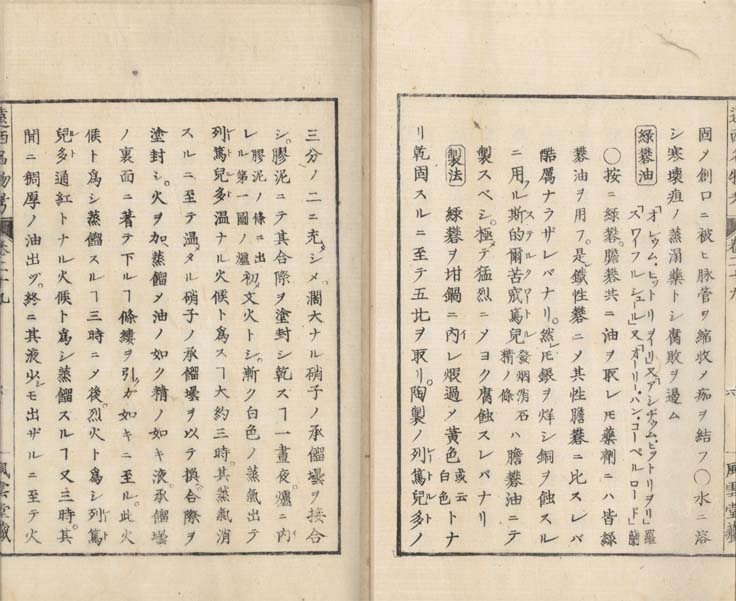 固ノ創口ニ被ヒ脉管ヲ縮收メ痂ヲ結フ〇水ニ溶
シ寒壊疽ノ蒸溻藥トシ腐敗ヲ遏ム
緑礬油
「オレウム、ヒットリヲーリ」又「アシヂュム、ヒットリヲリ」羅
「スワーフルシュール」又「オーリー、ハン、コーペルロード」蘭
〇按ニ緑礬。膽礬共ニ油ヲ取レモ藥劑ニハ皆緑
礬油ヲ用フ。是鐵性礬ニメ其性膽礬ニ比スレバ
酷厲ナラザレバナリ。然ルニ銀ヲ烊シ銅ヲ蝕スル
ニ用ル斯的爾苦窊篤兒ステルクワートル發烟消石精ノ條ハ膽礬油ニテ
製スベシ。極テ猛烈ニメヨク腐蝕スレバナリ
製法 緑礬ヲ坩鍋ニ内レ煆過メ黄色或云白色トナ
リ乾固スルニ至テ五比ヲ取リ。陶製ノ列篤兒多ノ
三分ノ二ニ充シメ。濶大ナル硝子ノ承餾壜ヲ接合
シ。膠泥ニテ其合際ヲ塗封シ乾スヿ一晝夜。爐ニ内
レル膠泥ノ條ニ出第一圖ノ爐初メ文火トシ。漸ク白色ノ蒸氣出テ
列篤兒多温ナル火候ト爲スヿ大約三時。其蒸氣消
スルニ至テ温メタル硝子ノ承餾壜ヲ以テ換。合際ヲ
塗封シ。火ヲ加。蒸餾メ油ノ如ク精ノ如キ液。承餾壜
ノ裏面ニ著テ下ルヿ條縷ヲ引クガ如キニ至ル。此火
候ト爲シ蒸餾スルヿ三時ニメ後。烈火ト爲シ列篤
兒多通紅トナル火候ト爲シ蒸餾スルヿ又三時。其
間ニ稠厚ノ油出ヅ。終ニ其液少シモ出ザルニ至テ火
遠西名物考
卷二十九
風雲堂藏